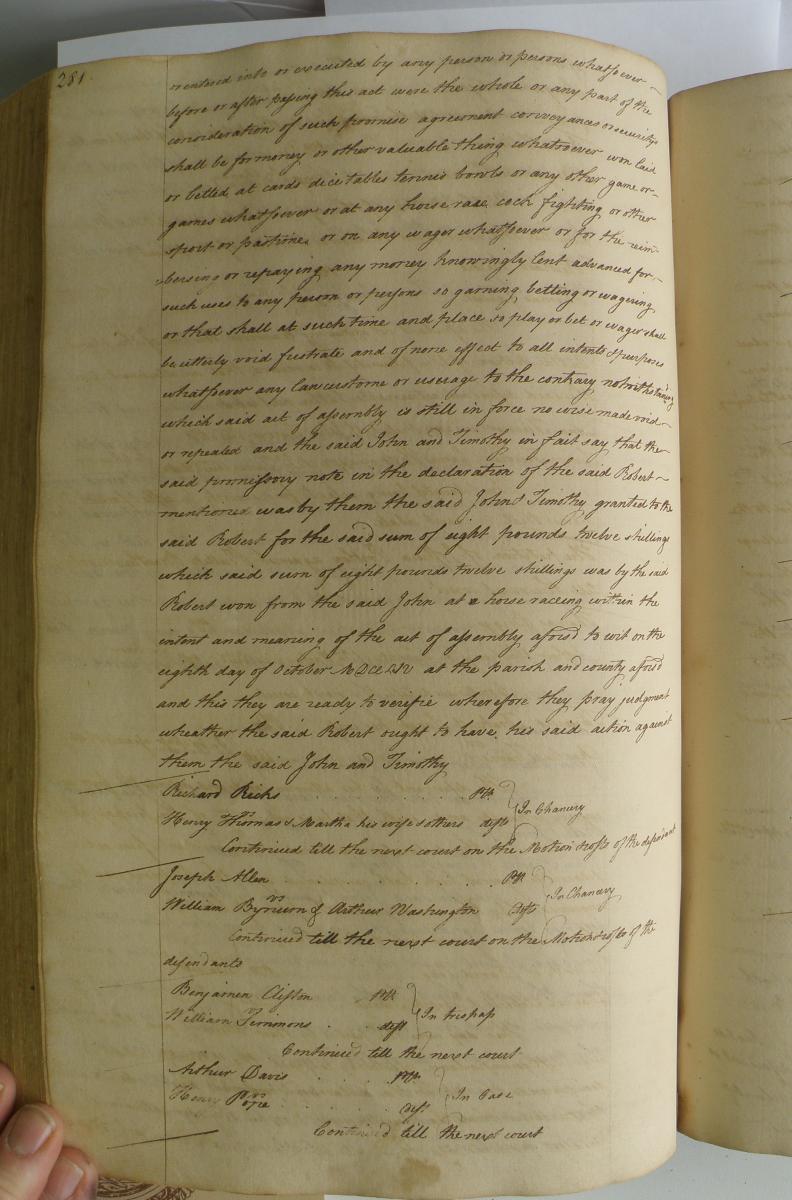 281.
or entered into or executed by any person or persons whatsoever
before or after passing this act were the whole or any part of the
consideration of such promise agreement conveyances or security's
shall be for money or other valuable thing whatsoever won laid
or betted at cards dice tables tennis bowls or any other game or
games whatsoever or at any horse race cock fighting or other
sport or pastimes or on any wager whatsoever or for the reim-
bersing or repaying any money knowingly lent advanced for
such uses to any person or persons so gaming betting or wagering
or that shall at such time and place so play or bet or wager shall
be utterly void frustrate and of none effect to all intents & purposes
whatsoever any law custome or useage to the contrary notwithstanding
which said act of assembly is still in force no wise made void
or repealed and the said John and Timothy in fait say that the
said promissory note in the declaration of the said Robert
mentioned was by them the said John & Timothy granted to the
said Robert for the said sum of eight pounds twelve shillings
which said sum of eight pounds twelve shillings was by the said
Robert won from the said John at a horse raceing within the
intent and meaning of the act of assembly afores'd to wit on the
eighth day of October at the parish and county afores'd
and this they are ready to verifie wherefore they pray judgment
wheather the said Robert ought to have his said action against
them the said John and Timothy
Richard Ricks Plt.
In Chancery
Henry Thomas & Martha his wife & others defts
Continued till the next court on the Motion & costs of the defendant
Joseph Allen Plt
vs In Chancery
William Bynum & Arthur Washington Defts
Continued till the next court on the Motion & costs of the
defendants
Benjamen Clifton Plt.
In trespass
William Timmons deft
Continued till the next court
Arthur Davis Plt.
vs In Case
Henry Pope deft
Continued till the next court